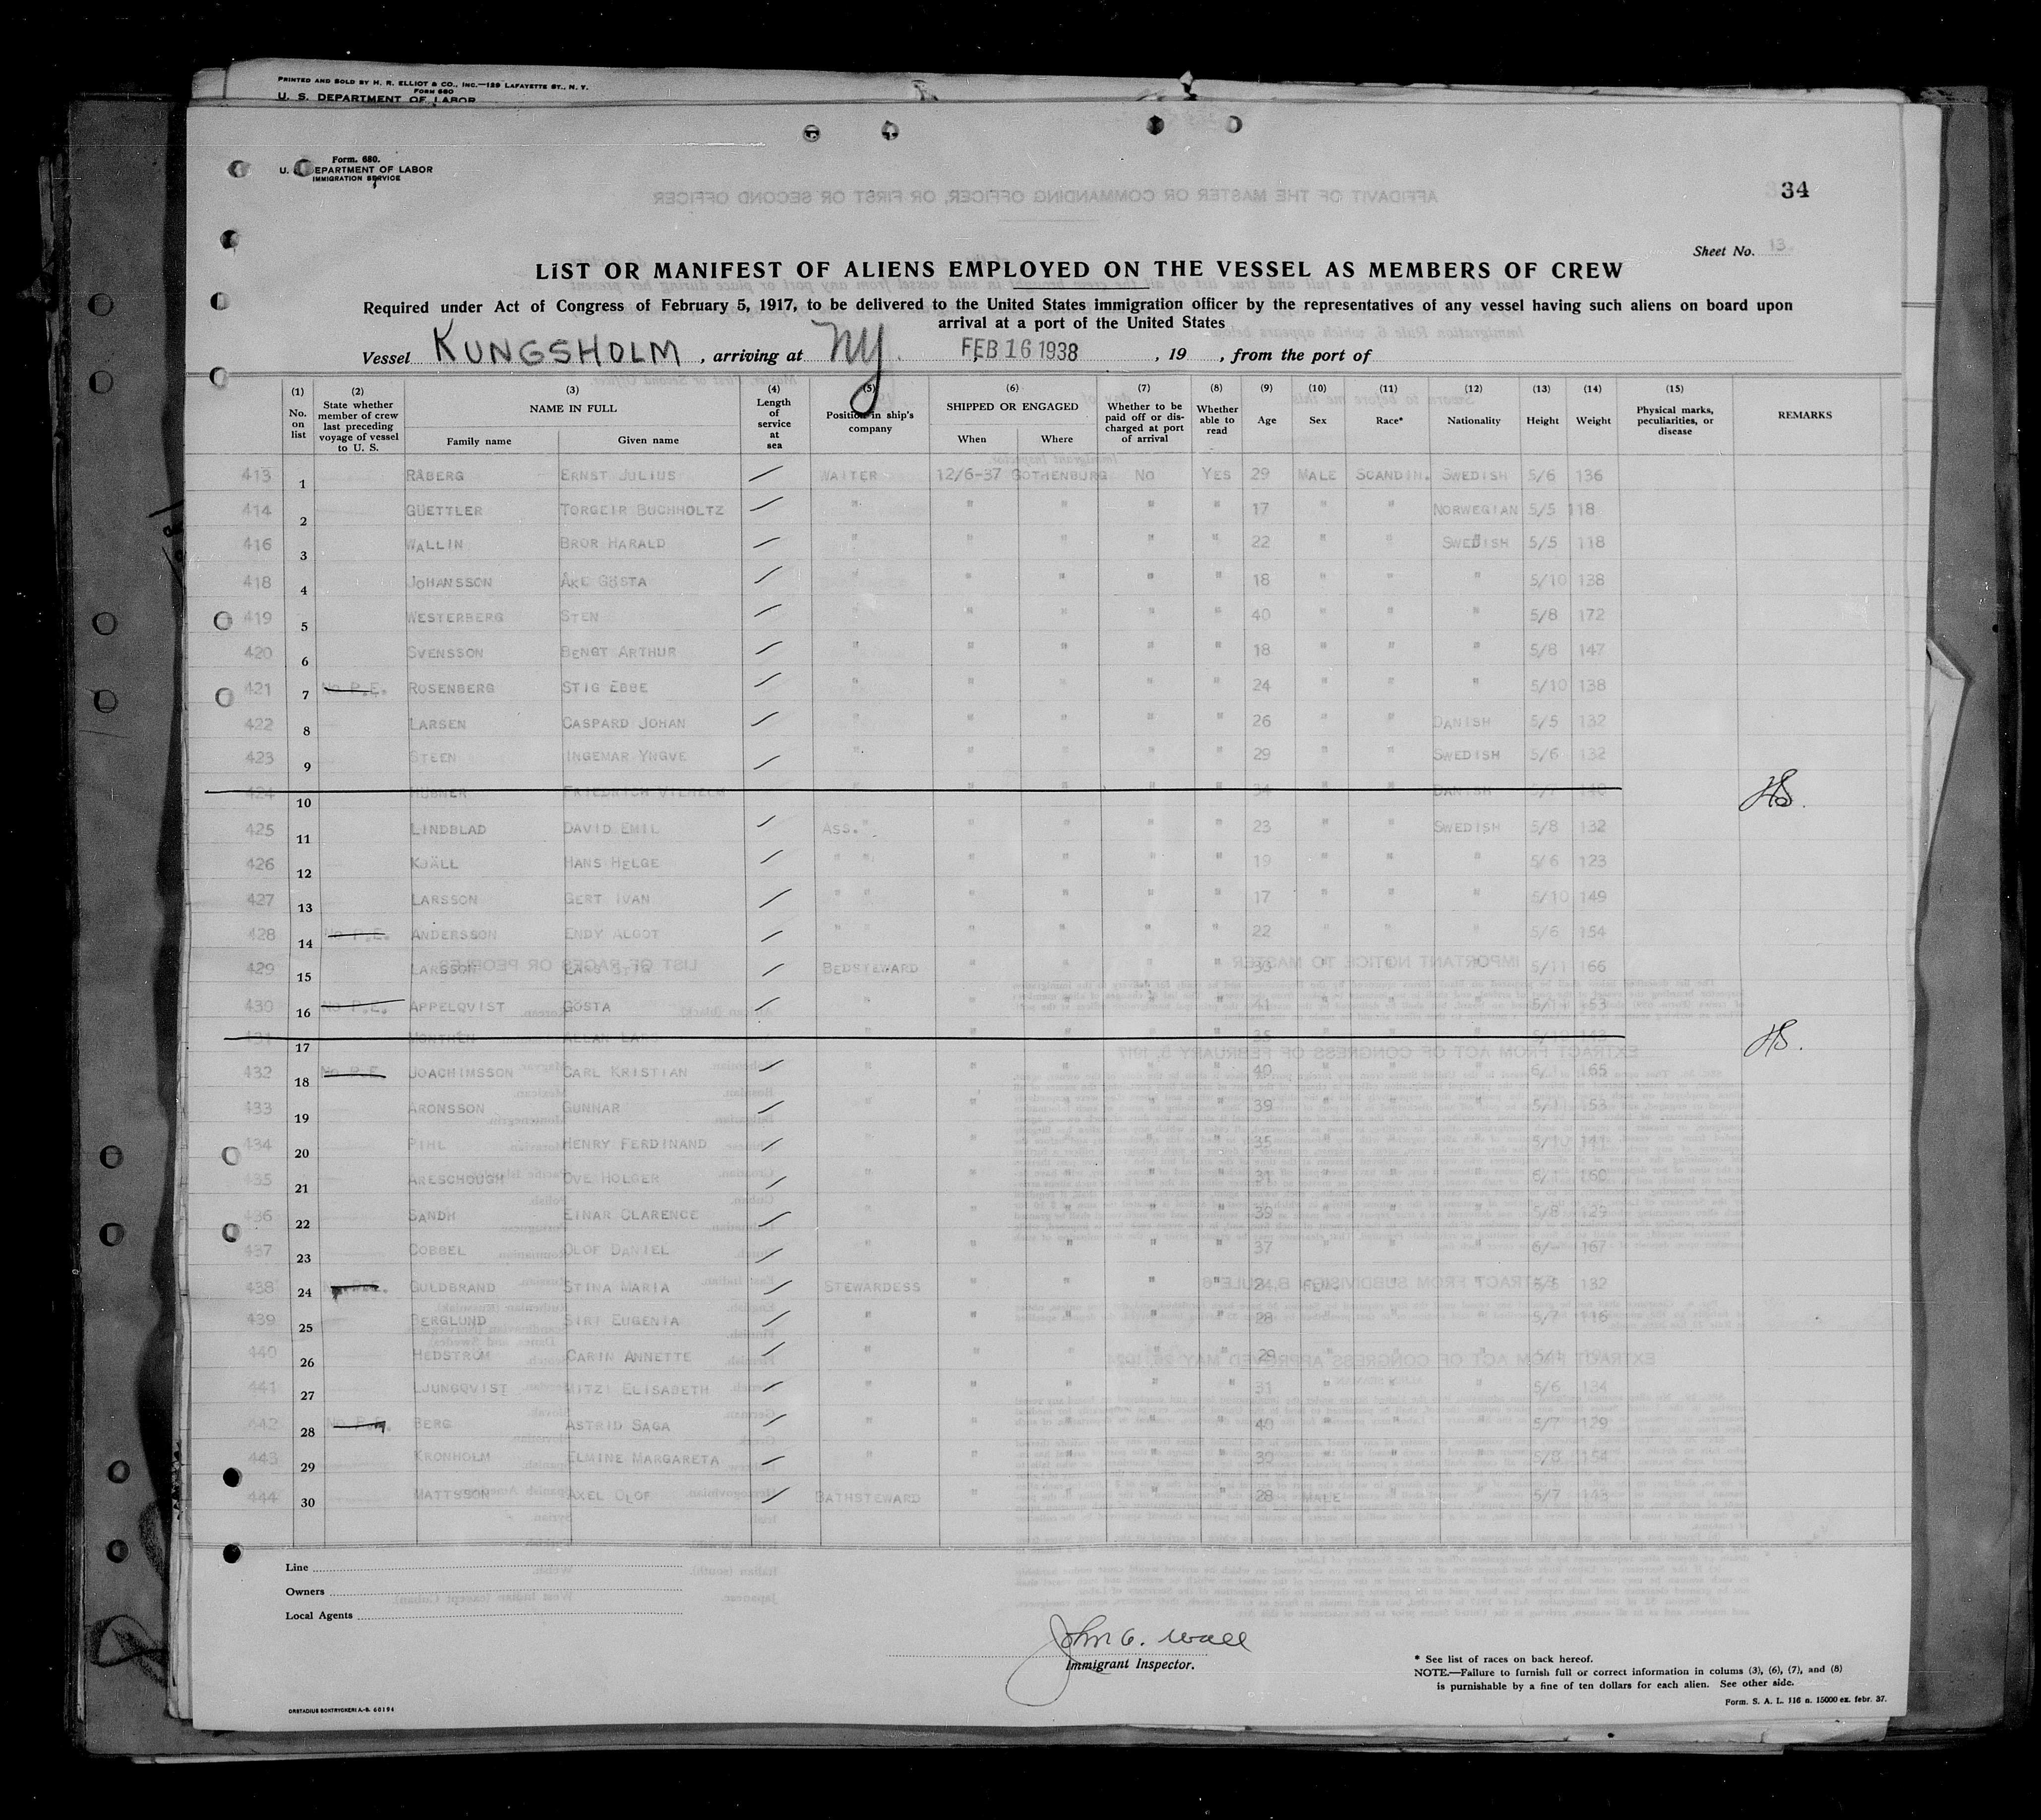 PRINTED AND SOLD BY H. R. ELLIOT & CO., INC.—129 LAFAYETTE ST., N. Y.
FORM 680
U. S. DEPARTMENT OF LABOR
Form. 680.
U. S. DEPARTMENT OF LABOR
IMMIGRATION SERVICE
34
Sheet No. 13.
LIST OR MANIFEST OF ALIENS EMPLOYED ON THE VESSEL AS MEMBERS OF CREW
Required under Act of Congress of February 5, 1917, to be delivered to the United States immigration officer by the representatives of any vessel having such aliens on board upon
arrival at a port of the United States
Vessel KUNGSHOLM, arriving at NY. FEB 16 1938, 19 , from the port of
(1) No. on list (2) State whether member of crew last preceding voyage of vessel to U. S. (3) NAME IN FULL Family name Given name (4) Length of service at sea (5) Position in ship's company (6) SHIPPED OR ENGAGED When Where (7) Whether to be paid off or discharged at port of arrival (8) Whether able to read (9) Age (10) Sex (11) Race* (12) Nationality (13) Height (14) Weight (15) Physical marks, peculiarities, or disease REMARKS
413 1 RÅBERG ERNST JULIUS WAITER 12/6-37 GOTHENBURG NO YES 29 MALE SCANDIN. SWEDISH 5/6 136
414 2 GÜETTLER TORGEIR BUCHHOLTZ " " " " " 17 " " NORWEGIAN 5/5 118
416 3 WALLIN BROR HARALD " " " " " 22 " " SWEDISH 5/5 118
418 4 JOHANSSON ÅKE GÖSTA " " " " " 18 " " " 5/10 138
419 5 WESTERBERG STEN " " " " " 40 " " " 5/8 172
420 6 SVENSSON BENGT ARTHUR " " " " " 18 " " " 5/8 147
421 7 NO P.E. ROSENBERG STIG EBBE " " " " " 24 " " " 5/10 138
422 8 LARSEN CASPARD JOHAN " " " " " 26 " " DANISH 5/5 132
423 9 STEEN INGEMAR YNGVE " " " " " 29 " " SWEDISH 5/6 132
424 10 HÜBNER FRIEDRICH VILHELM " " " " " 34 " " DANISH HS.
425 11 LINDBLAD DAVID EMIL ASS. " " " " " 23 " " SWEDISH 5/8 132
426 12 KJÄLL HANS HELGE " " " " " " 19 " " " 5/6 123
427 13 LARSSON GERT IVAN " " " " " " 17 " " " 5/10 149
428 14 NO P.E. ANDERSSON ENDY ALGOT " " " " " " 22 " " " 5/6 154
429 15 LARSSON LARS STIG BEDSTEWARD " " " " 33 " " " 5/11 166
430 16 NO P.E. APPELQVIST GÖSTA " " " " " 41 " " " 153
431 17 ALLAN LARS " " " " " 35 " " " 5/10 143 HS.
432 18 NO P.E. JOACHIMSSON CARL KRISTIAN " " " " " 40 " " " 6/1 165
433 19 ARONSSON GUNNAR " " " " " 39 " " " 153
434 20 PIHL HENRY FERDINAND " " " " " 35 " " " 5/10 141
435 21 ARESCHOUGH OVE HOLGER " " " " " 31 " " " 6/1 160
436 22 SANDH EINAR CLARENCE " " " " " 39 " " " 5/8 129
437 23 COBBEL OLOF DANIEL " " " " " 37 " " " 6/- 167
438 24 GULDBRAND STINA MARIA STEWARDESS " " " " 24 FEM. " " 5/5 132
439 25 BERGLUND SIRI EUGENIA " " " " " 28 " " " 5/7 116
440 26 HEDSTRÖM CARIN ANNETTE " " " " " 29 " " "
441 27 LJUNGQVIST MITZI ELISABETH " " " " " 31 " " " 5/6 134
442 28 NO P.E. BERG ASTRID SAGA " " " " " 40 " " " 5/7 129
443 29 KRONHOLM ELMINE MARGARETA " " " " " 39 " " " 5/8 154
444 30 MATTSSON AXEL OLOF BATHSTEWARD " " " " 28 MALE " " 5/7 143
Line
Owners
Local Agents
John G. Wall
Immigrant Inspector.
* See list of races on back hereof.
NOTE.—Failure to furnish full or correct information in colums (3), (6), (7), and (8)
is punishable by a fine of ten dollars for each alien. See other side.
Form. S. A. L. 116 n. 15000 ex. febr. 37.
ORSTADIUS BOKTRYCKERI A.-B. 60194